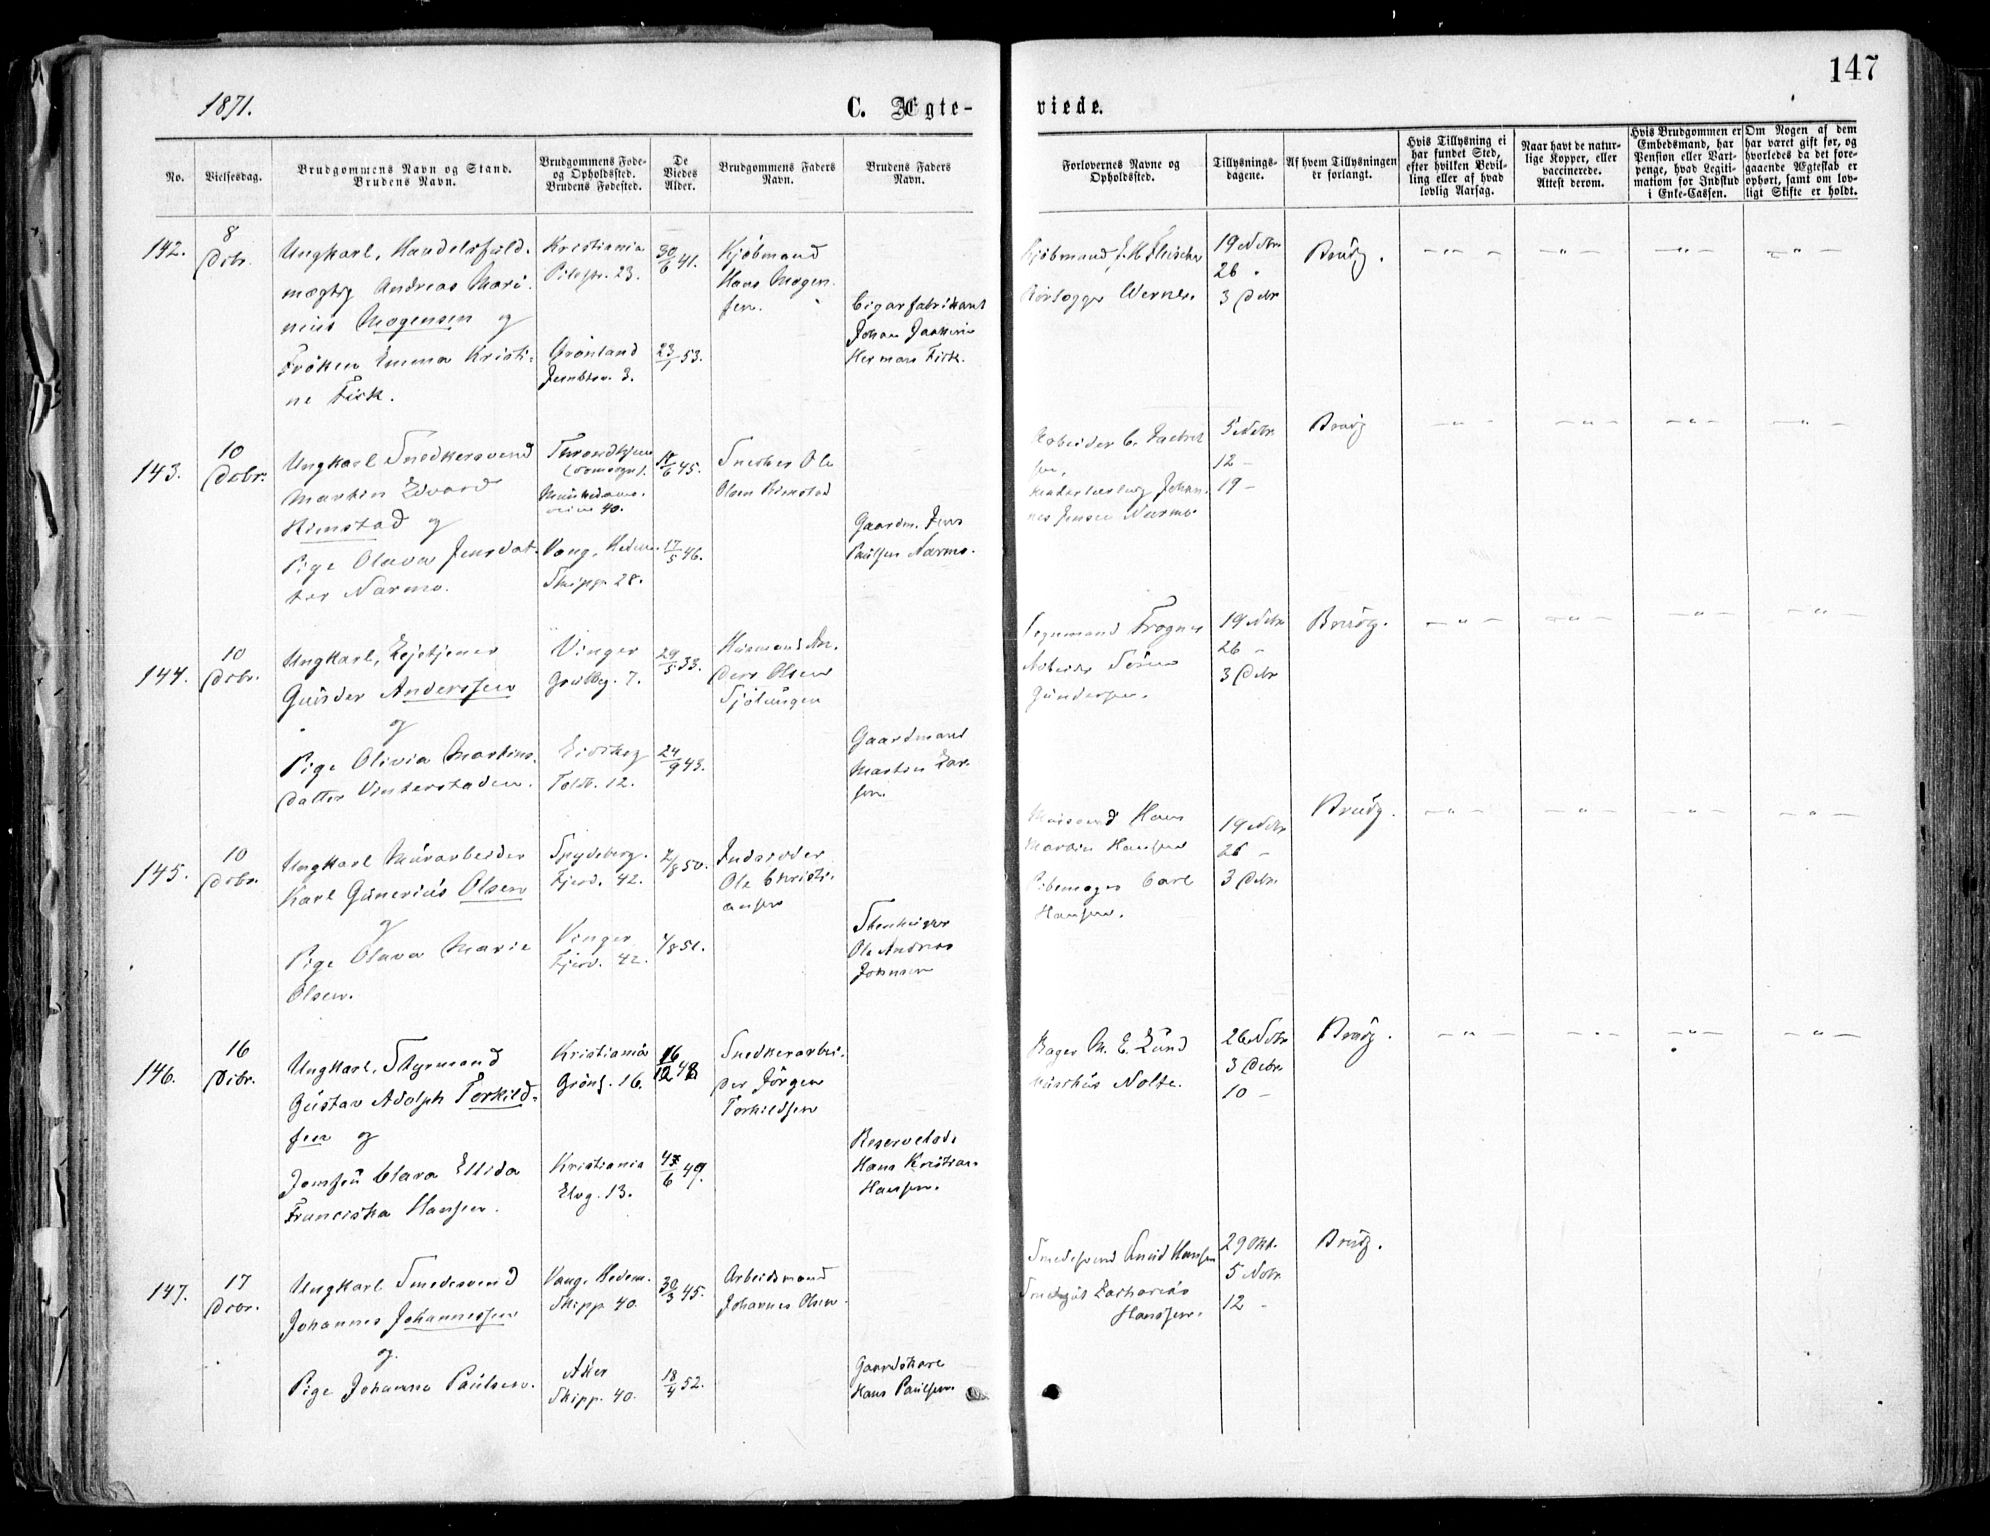 147
1871.
C. Ægte-
viede.
No.
Vielsesdag.
Brudgommens Navn og Stand.
Brudens Navn.
Brudgommens Føde-
og Opholdssted.
Brudens Fødested.
De
Viedes
Alder.
Brudgommens Faders
Navn.
Brudens Faders
Navn.
Forlovernes Navne og
Opholdssted.
Tillysnings-
dagene.
Af hvem Tillysningen
er forlangt.
Hvis Tillysning ei
har fundet Sted,
efter hvilken Bevil-
ling eller af hvad
lovlig Aarsag.
Naar havt de natur-
lige Kopper, eller
vaccinerede.
Attest derom.
Hvis Brudgommen er
Embedsmand, har
Pension eller Vart-
penge, hvad Legiti-
mation for Indskud
i Enke-Cassen.
Om Nogen af dem
har været gift før, og
hvorledes da det fore-
gaaende Ægteskab er
ophørt, samt om lov-
ligt Skifte er holdt.
142.
8
Dcbr.
Ungkarl, Handelsfuld-
mægtig Andreas Mari-
nius Mogensen og
Frøken Emma Kristi-
ne Fisk.
Kristiania
Pilestr. 23.
Grønland
30/6 41.
23/1 53.
Kjøbmand
Hans Mogen-
sen.
Cigarfabrikant
Johan
Herman Fisk.
Kjøbmand
Werner.
19 Nvbr
26 "
3 Dcbr
Brudg.
143.
10
Dcbr.
Ungkarl Snedkersvend
Martin Edvard
Kimstad og
Pige Olava Jensdat-
ter Narmo.
40.
Vang, Hedem.
Skipp. 28.
18/6 45.
17/5 46.
Snedker Ole
Olsen Kimstad
Gaardm. Jens
Paulsen Narmo.
Arbeider C.
Johan-
nes Jensen Narmo
5 Nvbr
12 –
19 –
Brudg
144.
10
Dcbr.
Ungkarl,
Gulder Anderssen
og
Pige Olivia Martins-
datter Vinterstaden.
Vinger
7.
Eidskog
Toldb. 12.
29/5 33.
24/9 43.
Husmand An-
ders Olsen
Gaardmand
Martin Lar-
sen.
Frogner
Arbeider
Gundersen.
19 Nvbr
26 –
3 Dcbr
Brudg.
145.
10
Dcbr.
Ungkarl Murarbeider
Karl Gunerius Olsen
og
Pige Olava Marie
Olsen.
Spydeberg.
Fjerd. 42.
Vinger
Fjerd. 42.
2/8 50.
4/8 51.
Inderoder
Ole Christi-
ansen
Stenhugger
Ole Andreas
Johnsen
Mursvend Hans
Martin Hansen
Pibemager Carl
Hansen.
19 Nvbr
26 –
3 Dcbr
Brudg.
146.
16
Dcbr.
Ungkarl, Styrmand
Gustav Adolph Torkild-
sen og
Jomfru Clara Ellida
Franciska Hansen.
Kristiania
Grønl. 16.
Kristiania
Elvg. 13.
16/12 48
6 49.
Snedkerarbei-
der Jørgen
Torkildsen
Hans Kristian
Hansen.
Bager M. E. Lund
Nolte.
26 Nvbr
3 Dcbr
10 –
Brudg.
147.
17
Dcbr.
Ungkarl Smedesvend
Johannes Johannessen
og
Pige Johanne Paulsen.
Vang, Hedem.
Skipp. 40.
Aker
Skipp. 40.
30/3 45.
18/4 52.
Arbeidsmand
Johannes Olsen
Gaardskarl
Hans Paulsen
Smedesvend Knud Hansen
Zacharias
Hanssen.
29 Okt.
5 Nvbr
12 –
Brudg.